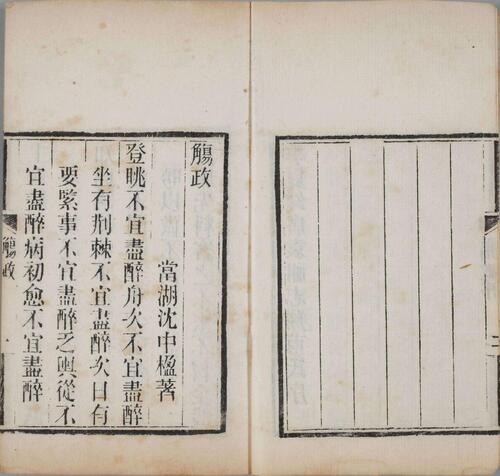 觴政
當湖沈中楹著
登眺不宜盡醉舟次不宜盡醉
坐有荆棘不宜盡醉次日有
要緊事不宜盡醉乏輿從不
宜盡醉病初愈不宜盡醉
觴政